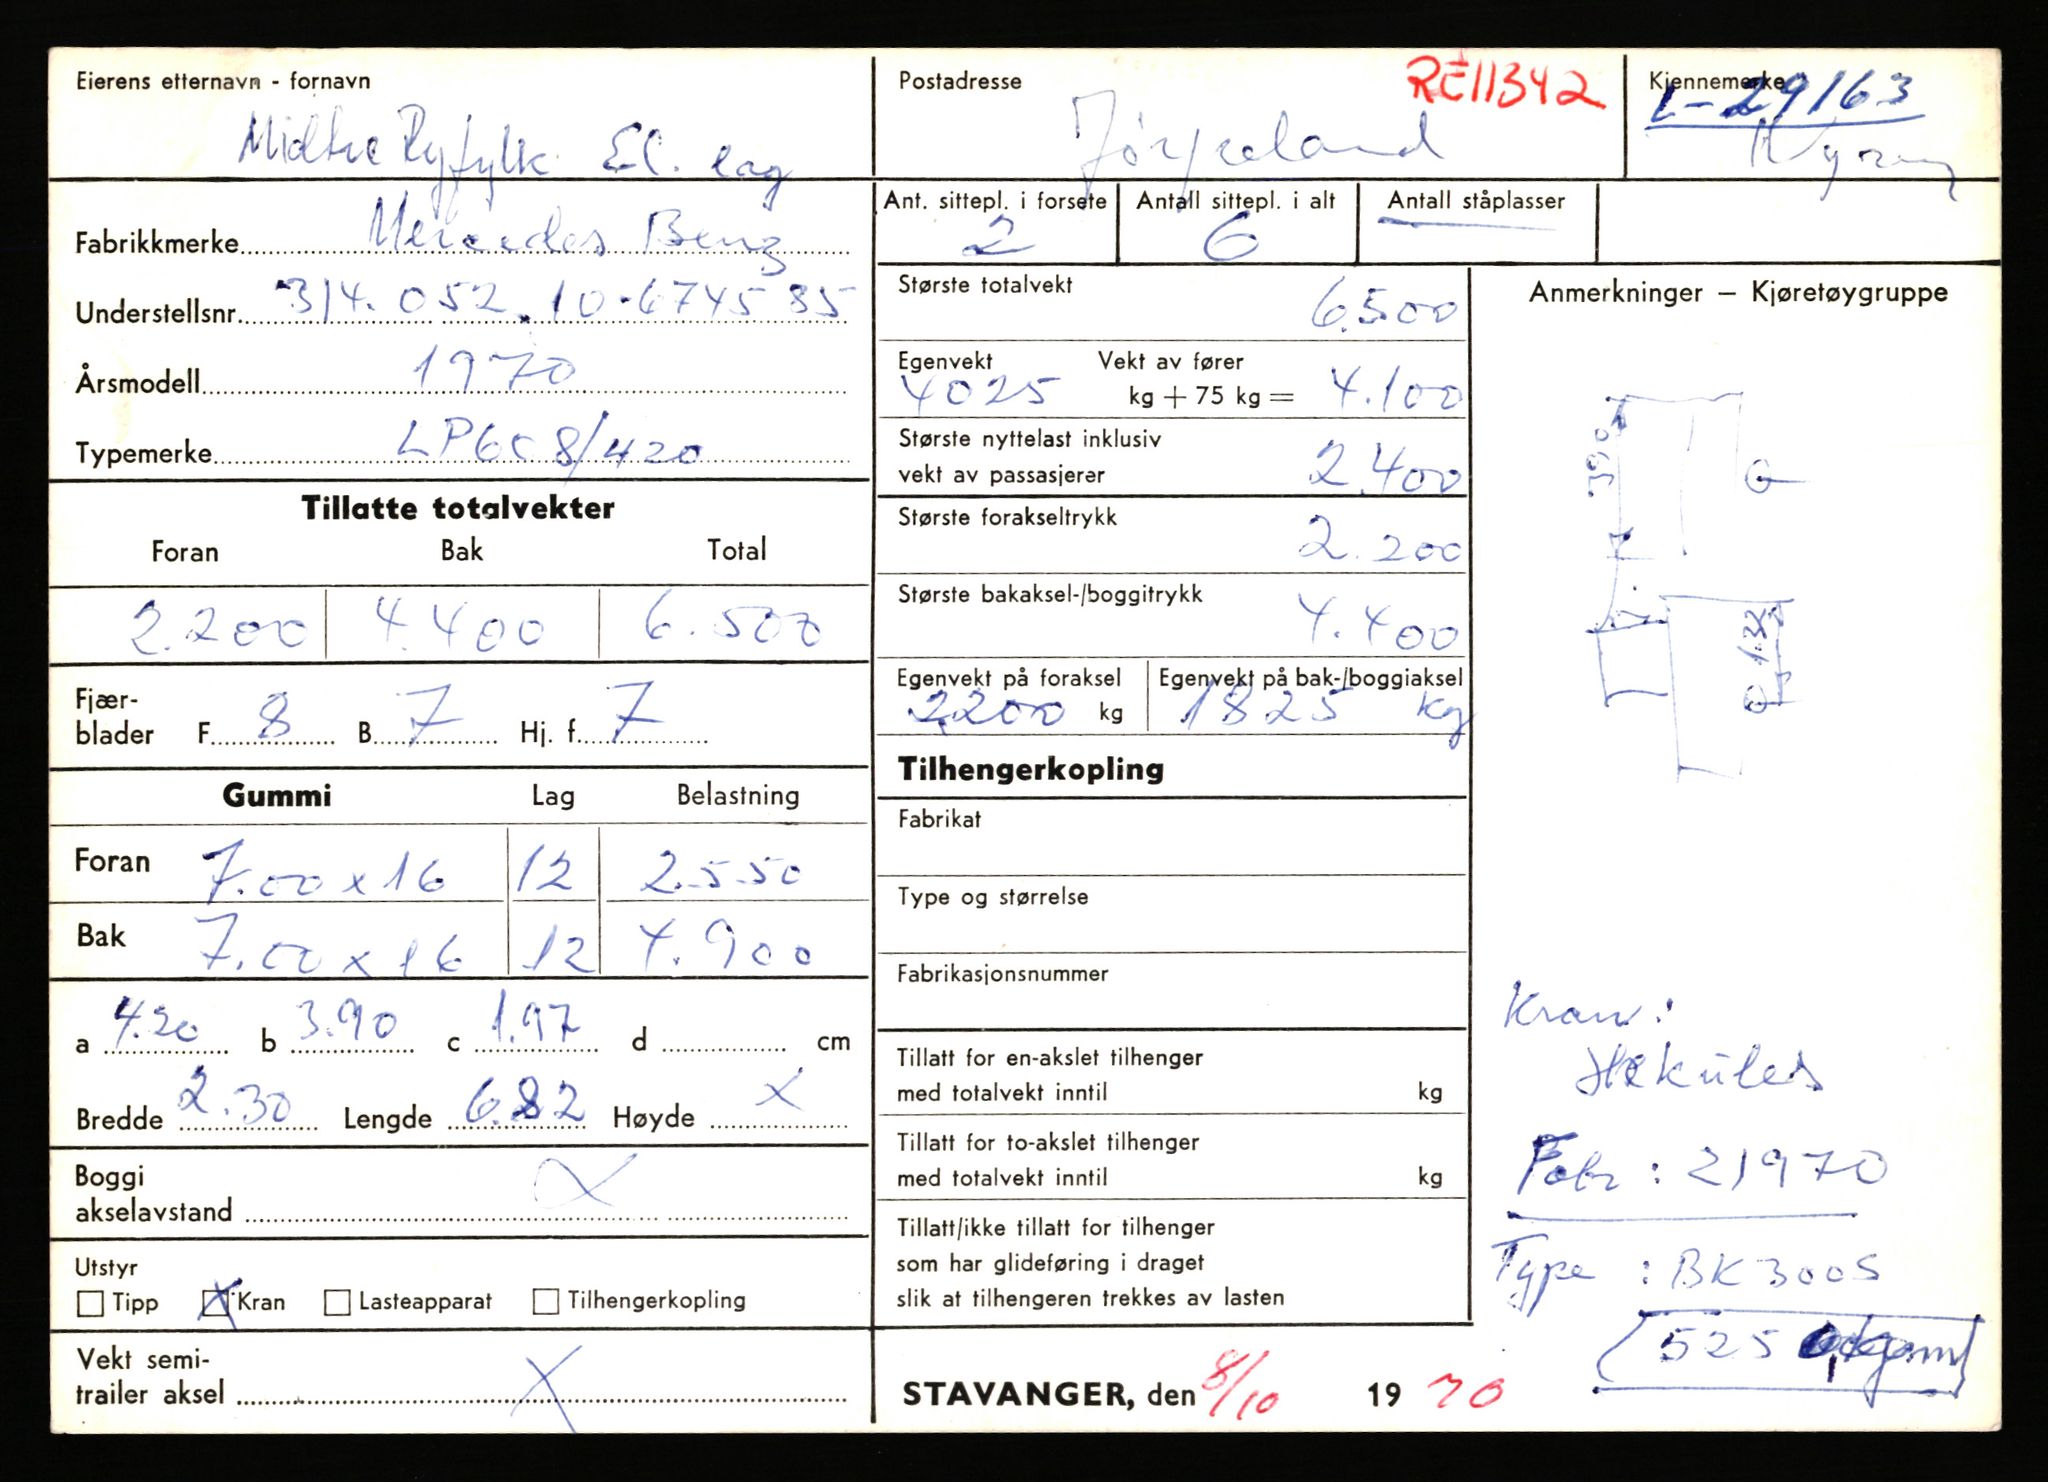 Eierens etternavn - fornavn
Midtre Ryfylk El. lag
Postadresse
RE11342
Jørpeland
Kjennemerke
L-29163
Fabrikkmerke Mercedes Benz
Understellsnr. 314.052.10-674535
Årsmodell 1970
Typemerke LP608/420
Ant. sittepl. i forsete
2
Antall sittepl. i alt
6
Antall ståplasser
Største totalvekt 6.500
Egenvekt Vekt av fører
4025 kg + 75 kg = 4.100
Største nyttelast inklusiv
vekt av passasjerer 2.400
Største forakseltrykk 2.200
Største bakaksel-/boggitrykk 4.400
Egenvekt på foraksel
2200 kg
Egenvekt på bak-/boggiaksel
1825 kg
Tillatte totalvekter
Foran Bak Total
2.200 4.400 6.500
Fjær-
blader F. 8 B. 7 Hj. f. 7
Gummi Lag Belastning
Foran 7.00 x 16 12 2.550
Bak 7.00 x 16 12 4.900
a 4.20 b 3.90 c 1.97 d cm
Bredde 2.30 Lengde 6.82 Høyde x
Boggi
akselavstand x
Utstyr
Tipp x Kran Lasteapparat Tilhengerkopling
Vekt semi-
trailer aksel x
Tilhengerkopling
Fabrikat
Type og størrelse
Fabrikasjonsnummer
Tillatt for en-akslet tilhenger
med totalvekt inntil kg
Tillatt for to-akslet tilhenger
med totalvekt inntil kg
Tillatt/ikke tillatt for tilhenger
som har glideføring i draget
slik at tilhengeren trekkes av lasten
STAVANGER, den 8/10 1970
Anmerkninger — Kjøretøygruppe
390
G
1.32
Kran:
Hekules
Fabr: 21970
Type: BK300S
525